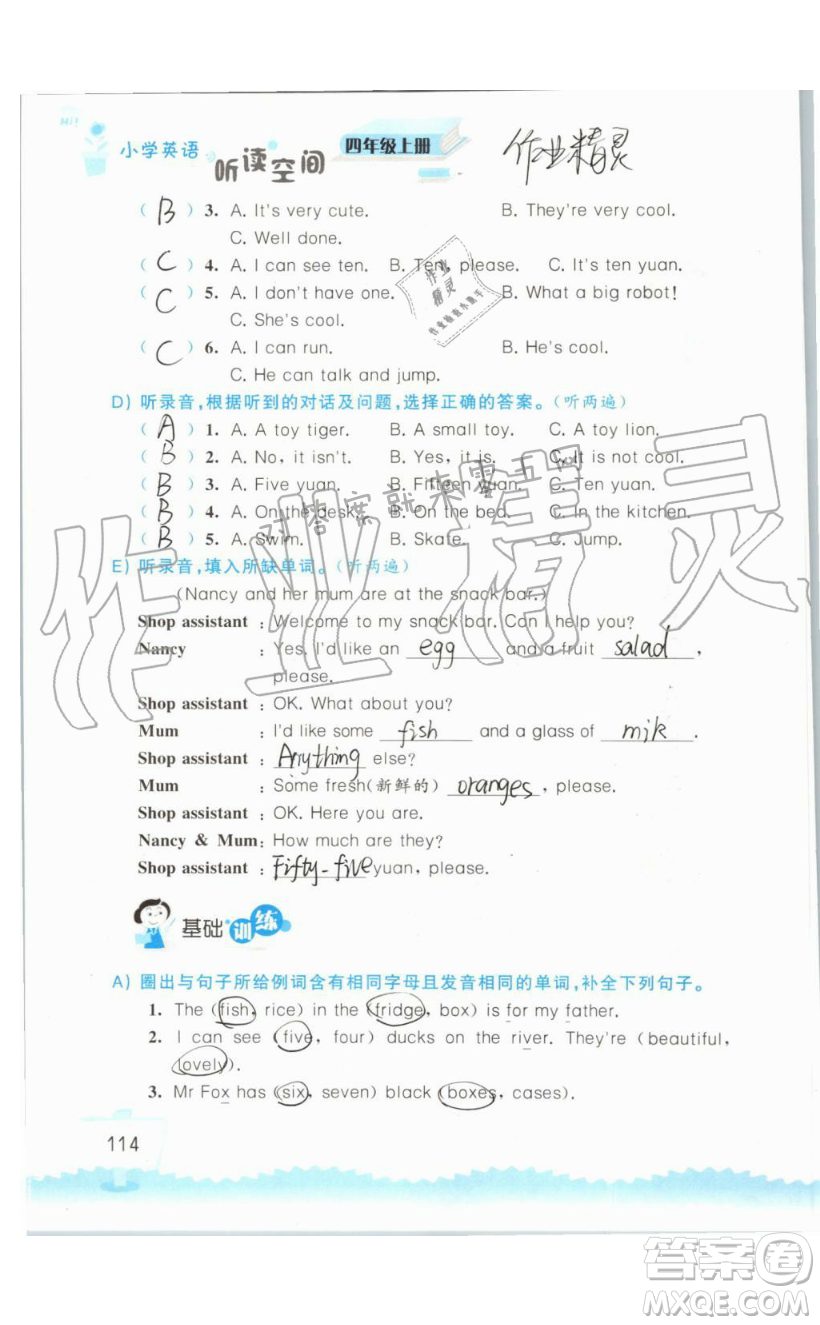 Hi!
小学英语 听读空间 四年级上册 作业精灵
( B ) 3. A. It's very cute. B. They're very cool.
C. Well done.
( C ) 4. A. I can see ten. B. Ten, please. C. It's ten yuan.
( C ) 5. A. I don't have one. B. What a big robot!
C. She's cool.
( C ) 6. A. I can run. B. He's cool.
C. He can talk and jump.
作业
精灵
D) 听录音,根据听到的对话及问题,选择正确的答案。(听两遍)
( A ) 1. A. A toy tiger. B. A small toy. C. A toy lion.
( B ) 2. A. No, it isn't. B. Yes, it is. C. It is not cool.
( B ) 3. A. Five yuan. B. Fifteen yuan. C. Ten yuan.
( B ) 4. A. On the desk. B. On the bed. C. In the kitchen.
( B ) 5. A. Swim. B. Skate. C. Jump.
对答案就来零五网
作业精灵
E) 听录音,填入所缺单词。(听两遍)
(Nancy and her mum are at the snack bar.)
Shop assistant : Welcome to my snack bar. Can I help you?
Nancy : Yes, I'd like an egg and a fruit salad,
please.
Shop assistant : OK. What about you?
Mum : I'd like some fish and a glass of mik.
Shop assistant : Anything else?
Mum : Some fresh(新鲜的) oranges, please.
Shop assistant : OK. Here you are.
Nancy & Mum: How much are they?
Shop assistant : Fifty-five yuan, please.
基础训练
A) 圈出与句子所给例词含有相同字母且发音相同的单词,补全下列句子。
1. The (fish, rice) in the (fridge, box) is for my father.
2. I can see (five, four) ducks on the river. They're (beautiful,
lovely).
3. Mr Fox has (six, seven) black (boxes, cases).
114
答案卷
MXQE.COM